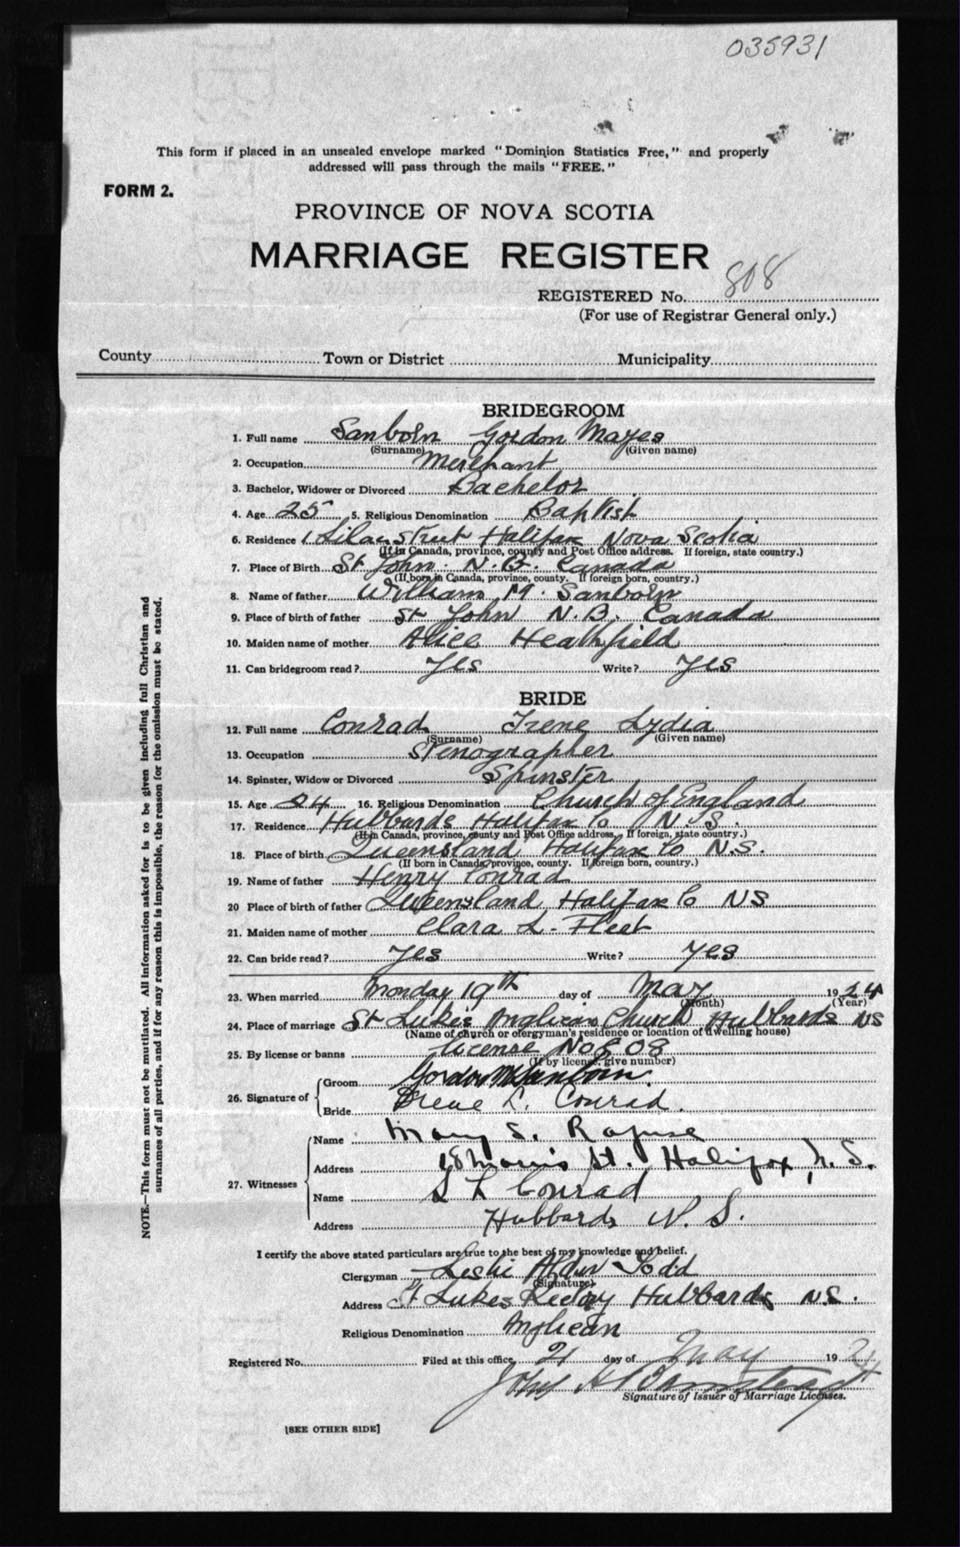 035931
This form if placed in an unsealed envelope marked "Dominion Statistics Free," and properly
addressed will pass through the mails "FREE."
FORM 2.
PROVINCE OF NOVA SCOTIA
MARRIAGE REGISTER
REGISTERED No. 808
(For use of Registrar General only.)
County Town or District Municipality
BRIDEGROOM
1. Full name Sanborn Gordon Mayes
(Surname) (Given name)
2. Occupation Merchant
3. Bachelor, Widower or Divorced Bachelor
4. Age 25 5. Religious Denomination Baptist
6. Residence 1 Street Halifax Nova Scotia
(If in Canada, province, county and Post Office address. If foreign, state country.)
7. Place of Birth St John. N.B. Canada
(If born in Canada, province, county. If foreign born, country.)
8. Name of father William M. Sanborn
9. Place of birth of father St John N.B. Canada
10. Maiden name of mother Alice Heathfield
11. Can bridegroom read? Yes Write? Yes
BRIDE
12. Full name Conrad Irene Lydia
(Surname) (Given name)
13. Occupation Stenographer
14. Spinster, Widow or Divorced Spinster
15. Age 24 16. Religious Denomination Church of England
17. Residence Hubbards Halifax Co N.S.
(If in Canada, province, county and Post Office address. If foreign, state country.)
18. Place of birth Queensland Halifax Co N.S.
(If born in Canada, province, county. If foreign born, country.)
19. Name of father Henry Conrad
20 Place of birth of father Queensland Halifax Co NS
21. Maiden name of mother Clara L. Fleet
22. Can bride read? Yes Write? Yes
23. When married Monday 19th day of May 1924
(Month) (Year)
24. Place of marriage St Lukes Anglican Church Hubbards NS
(Name of church or clergyman's residence or location of dwelling house)
25. By license or banns license No 808
(If by license, give number)
26. Signature of
Groom Gordon M Sanborn.
Bride Irene L. Conrad.
27. Witnesses
Name Mary S. Rafuse
Address Morris St. Halifax, N.S.
Name S L Conrad
Address Hubbards N.S.
I certify the above stated particulars are true to the best of my knowledge and belief.
Clergyman Leslie Alder Todd
(Signature)
Address St Lukes Rectory Hubbards N.S.
Religious Denomination Anglican
Registered No. Filed at this office 21 day of May 1924
John H
Signature of Issuer of Marriage Licenses.
[SEE OTHER SIDE]
NOTE.—This form must not be mutilated. All information asked for is to be given including full Christian and
surnames of all parties, and if for any reason this is impossible, the reason for the omission must be stated.